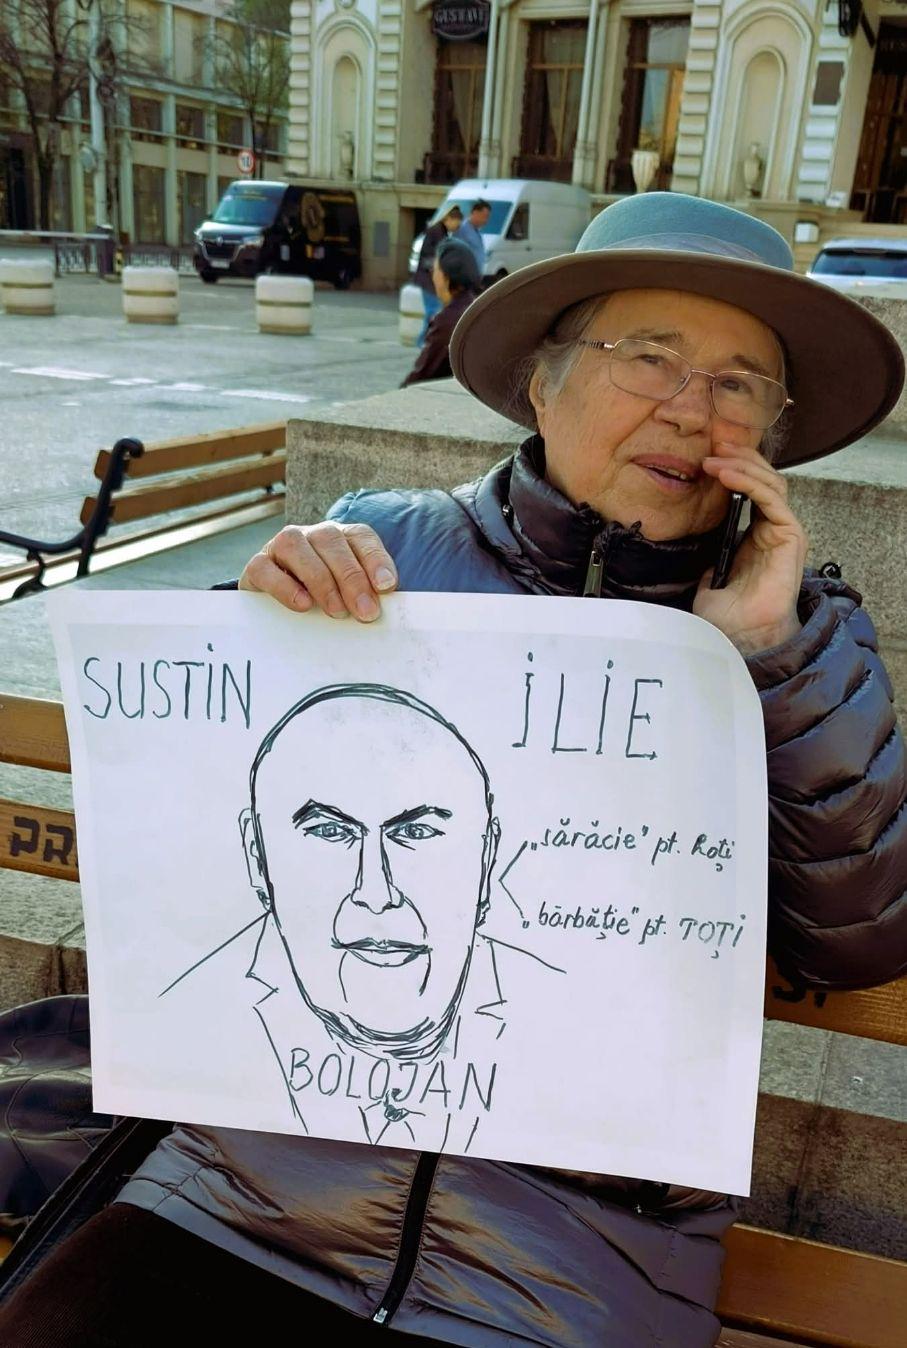 GUSTAV
SUSTİN İLİE
„sărăcie" pt. Roți
„bărbăție" pt. TOȚI
BOLOJAN
PR